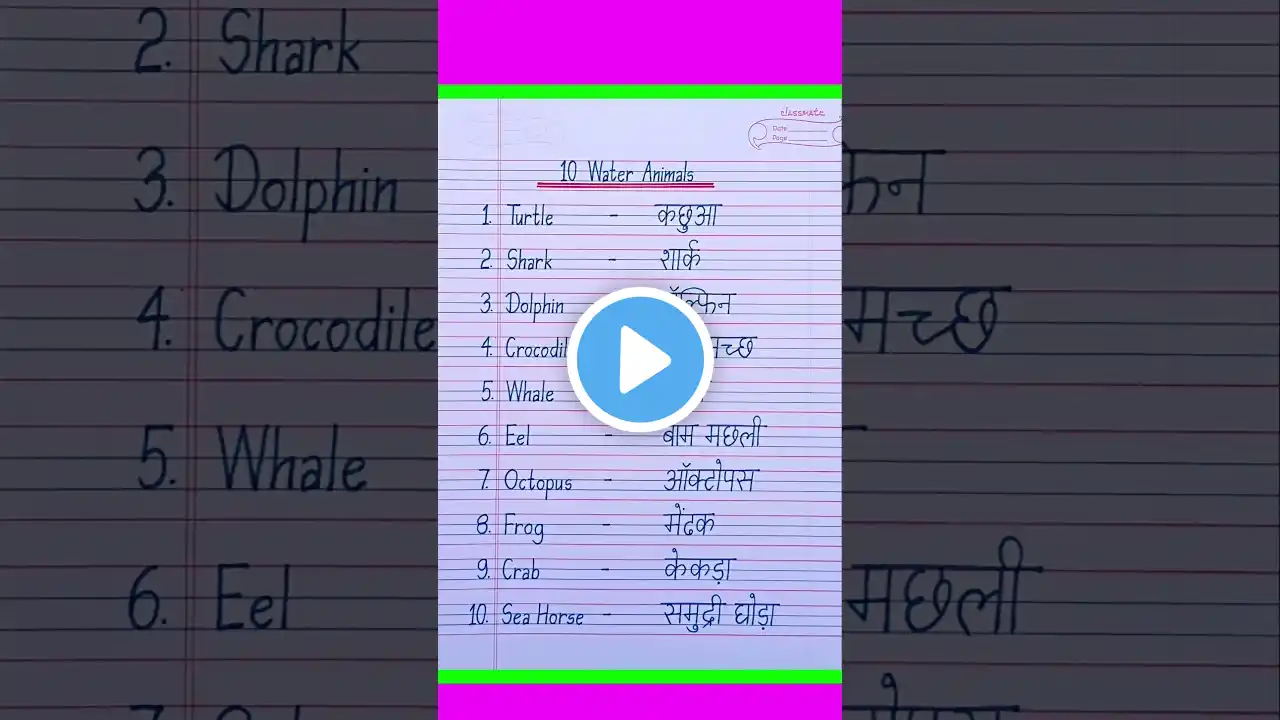 2. Shark
3. Dolphin
4. Crocodile
5. Whale
6. Eel
classmate
Date
Page
10 Water Animals
1. Turtle - कछुआ
2. Shark - शार्क
3. Dolphin
4.
5. Whale
6. Eel - बाम मछली
7. Octopus - ऑक्टोपस
8. Frog - मेंढक
9. Crab - केकड़ा
10. Sea Horse - समुद्री घोड़ा
मच्छ
मछली